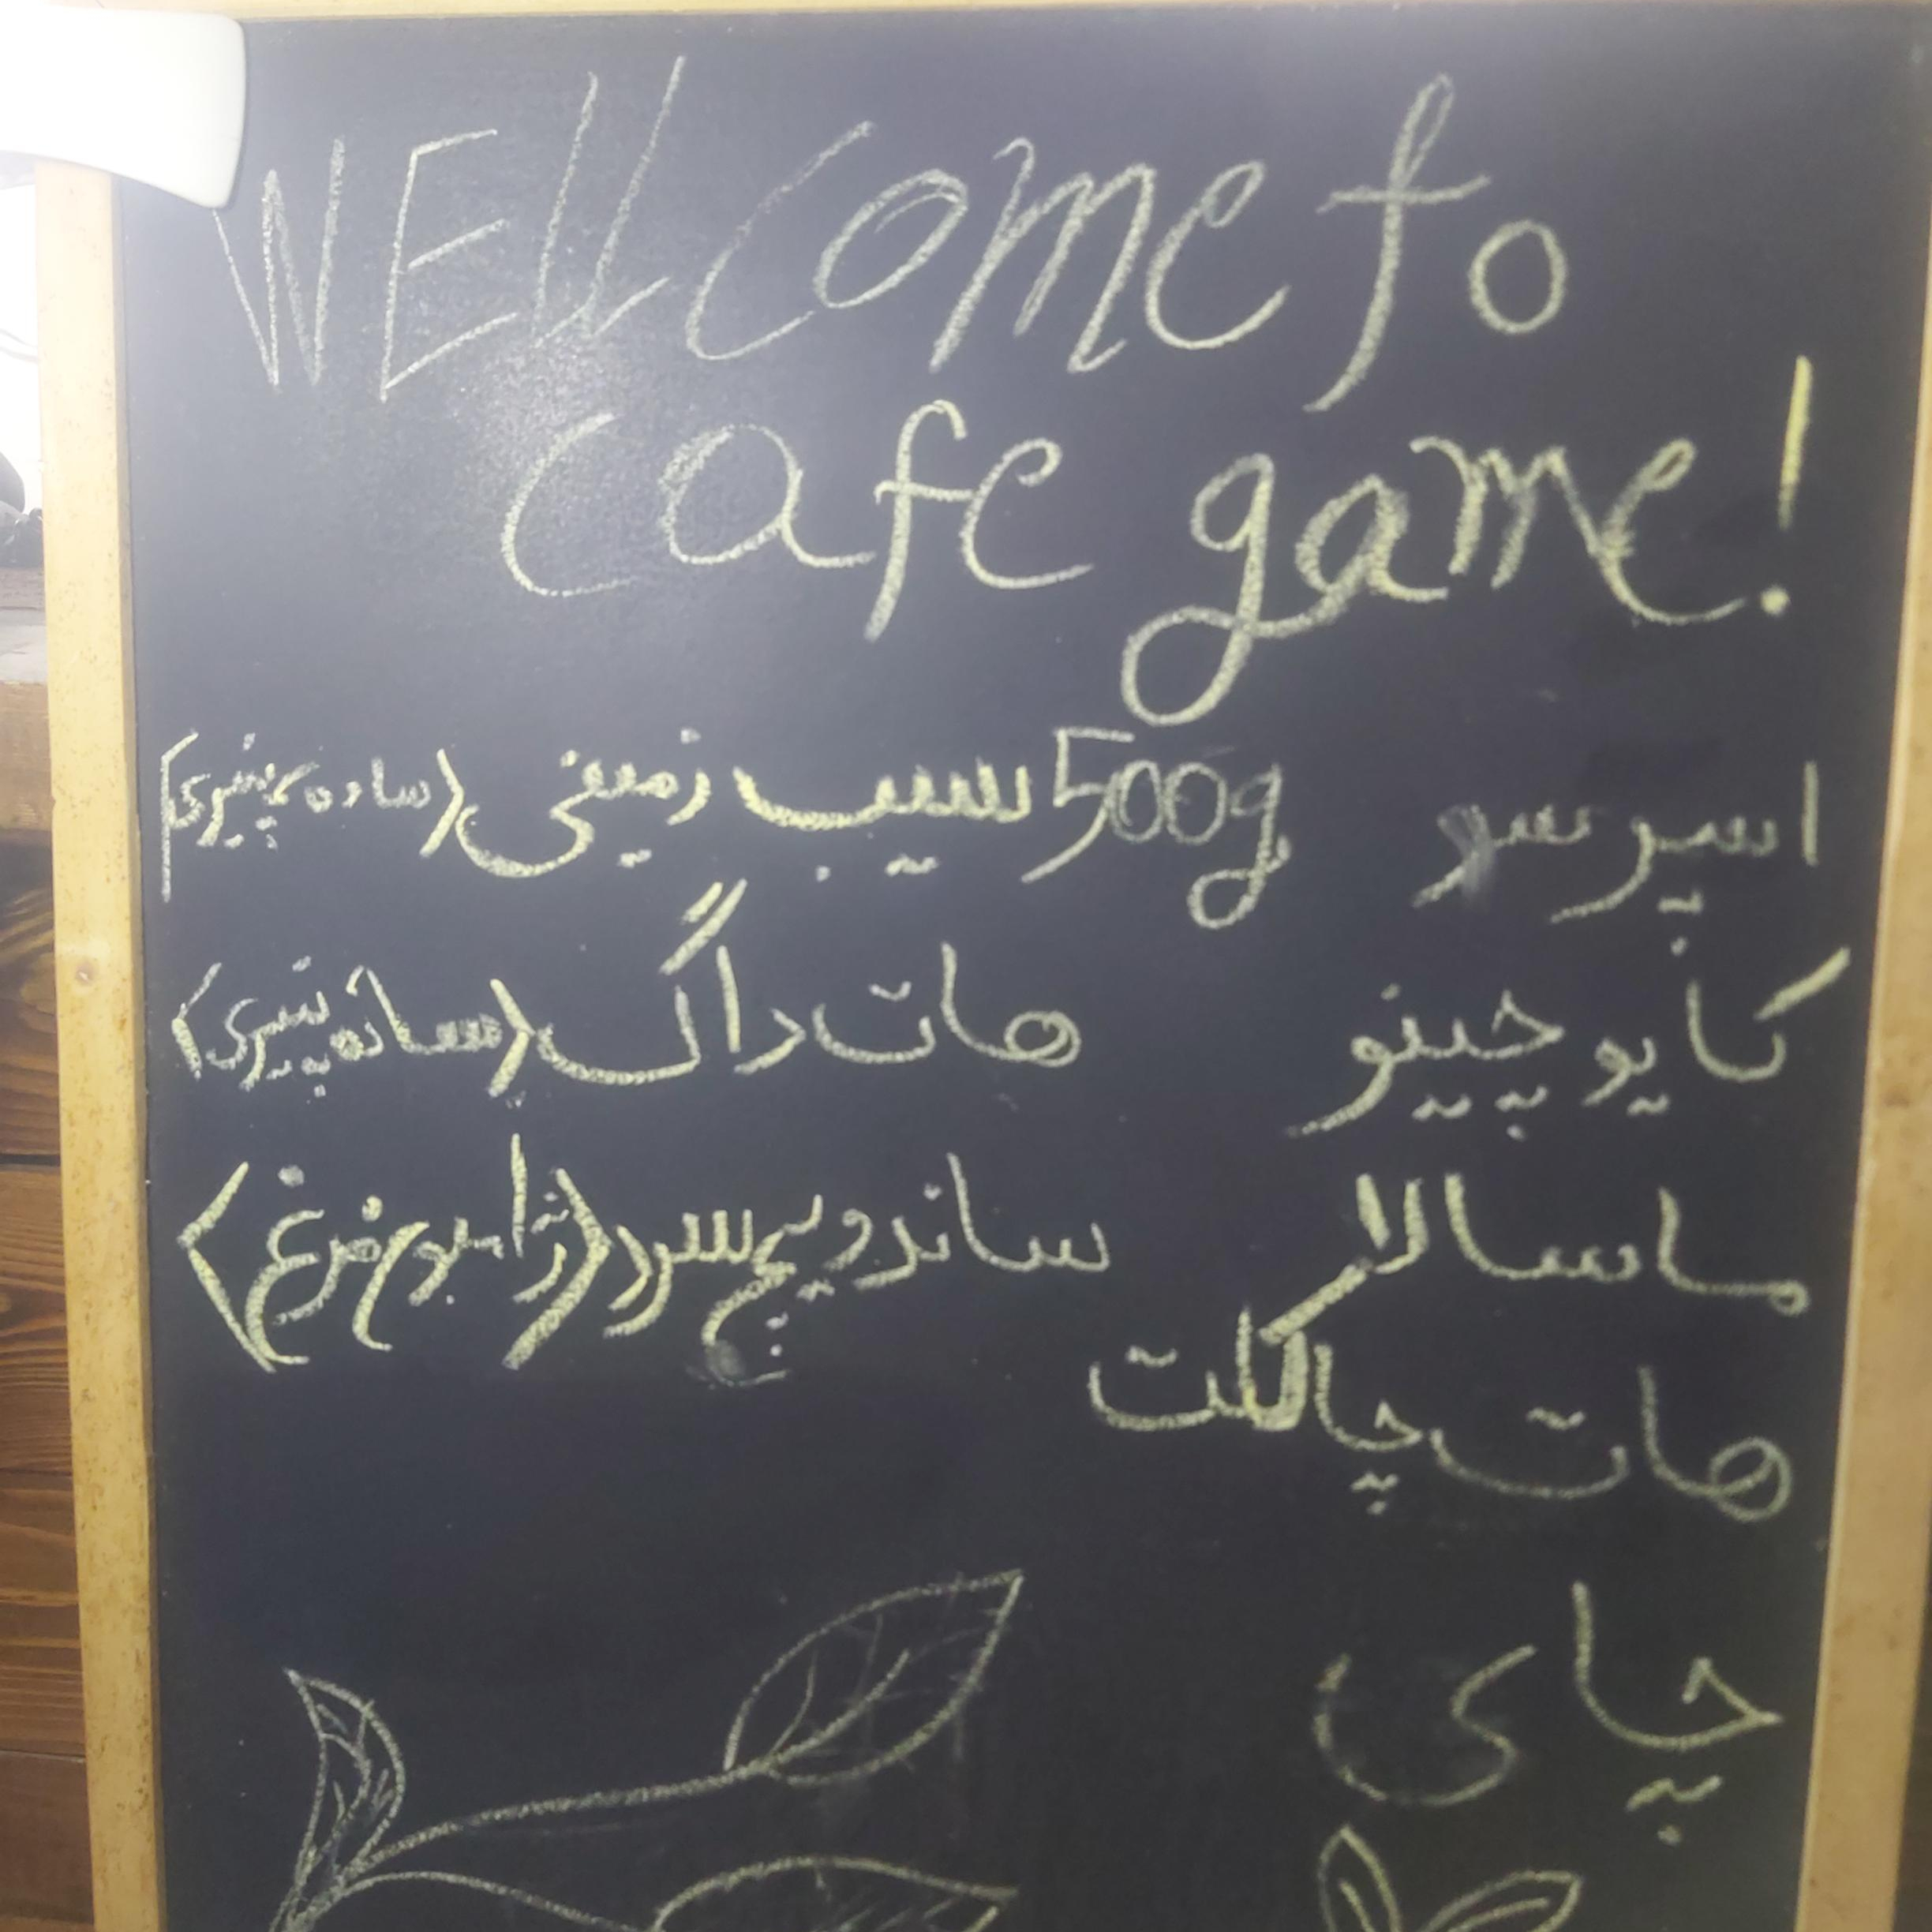 WEllcome to
cafe game!
اسپرسو
کاپوچینو
ماسالا
هات چاکلت
چای
500g سیب زمینی (ساده، پنیری)
هات داگ (ساده پنیری)
ساندویچ سرد (ژامبون مرغ)